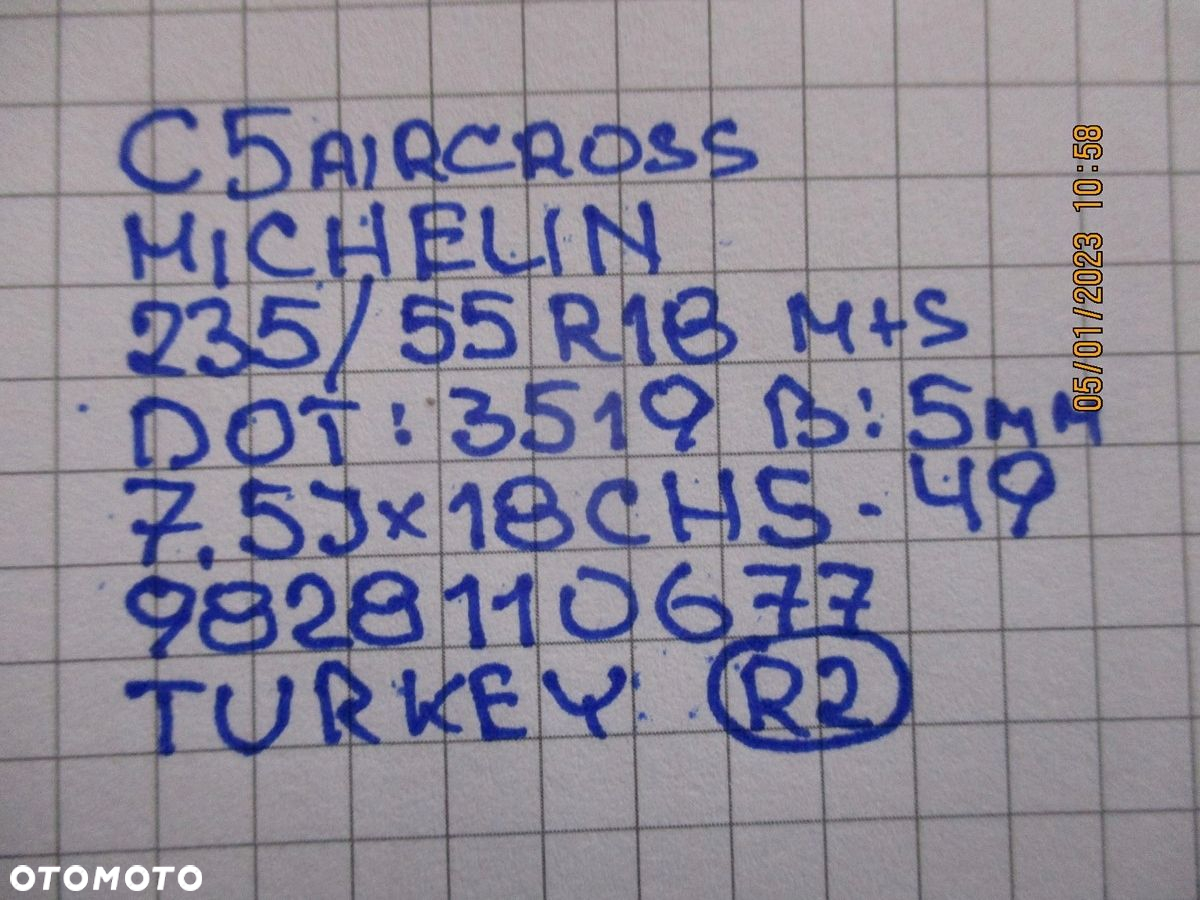 C5 AIRCROSS
MICHELIN
235/55 R18 M+S
DOT: 3519 B: 5mm
7.5J x 18 CHS - 49
9828110677
TURKEY R2
05/01/2023 10:58
OTOMOTO